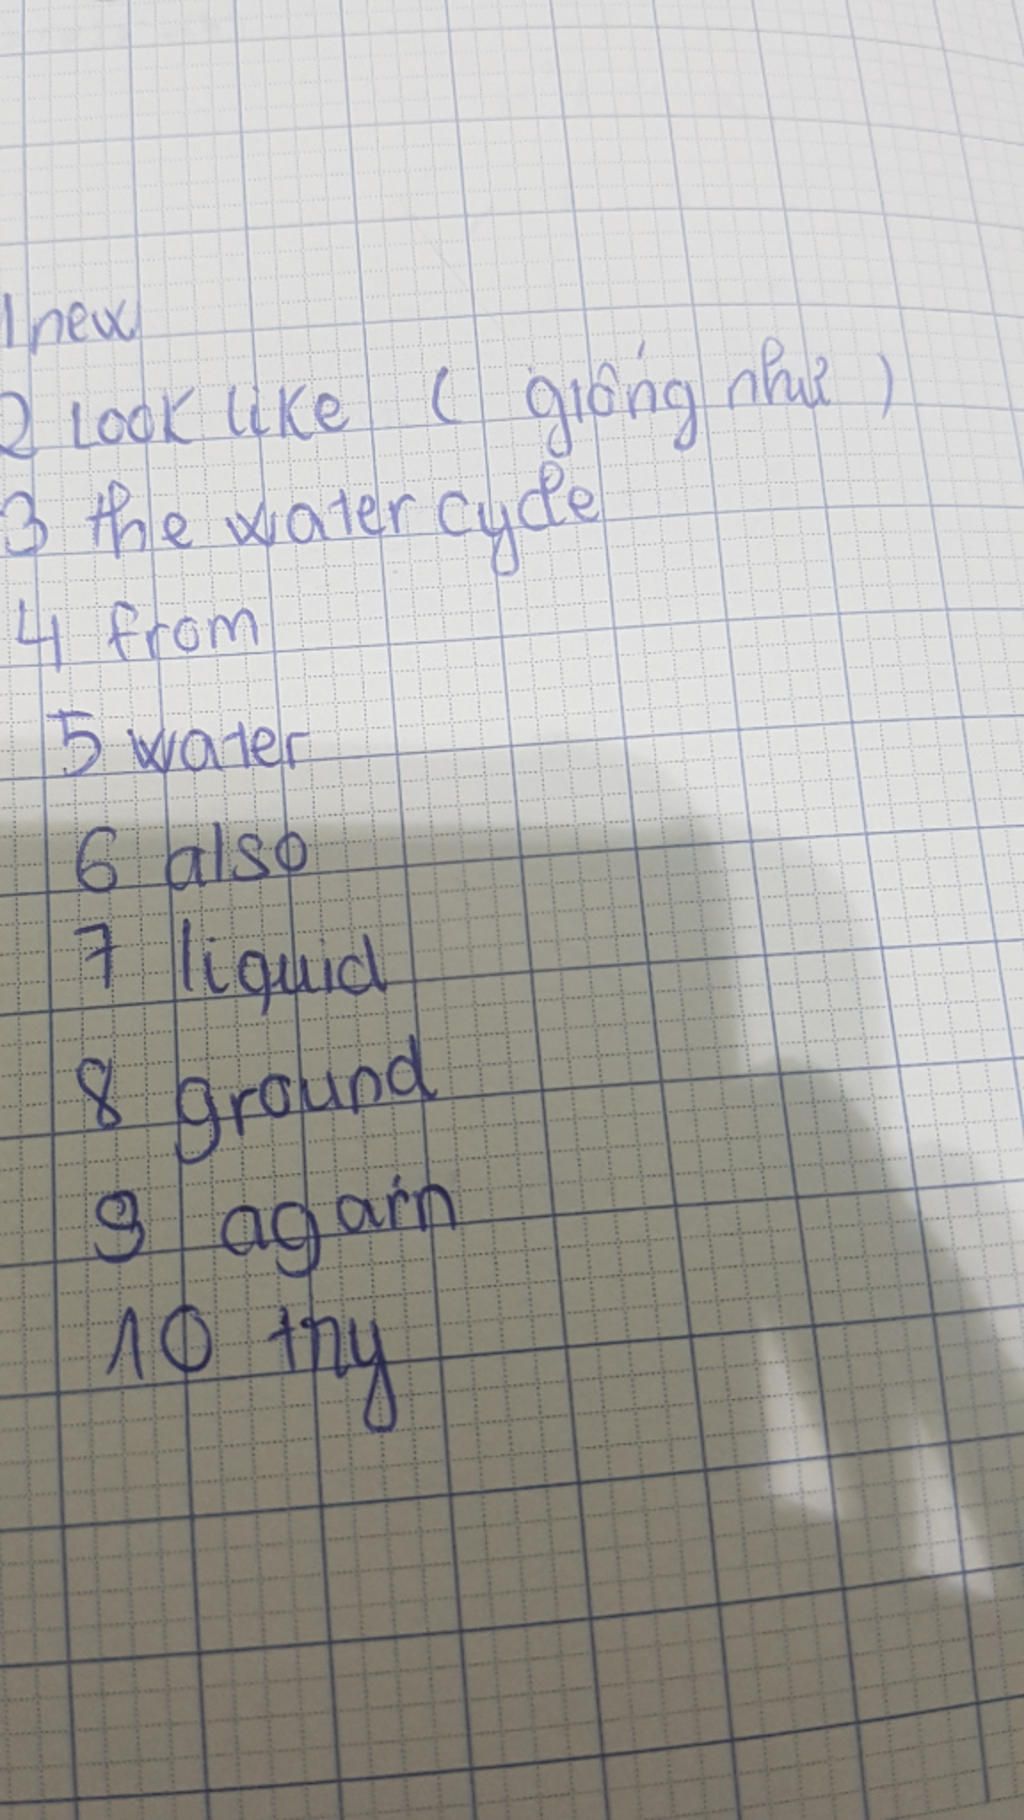 1 new
2 Look like ( giống như )
3 the water cycle
4 from
5 water
6 also
7 liquid
8 ground
9 again
10 try